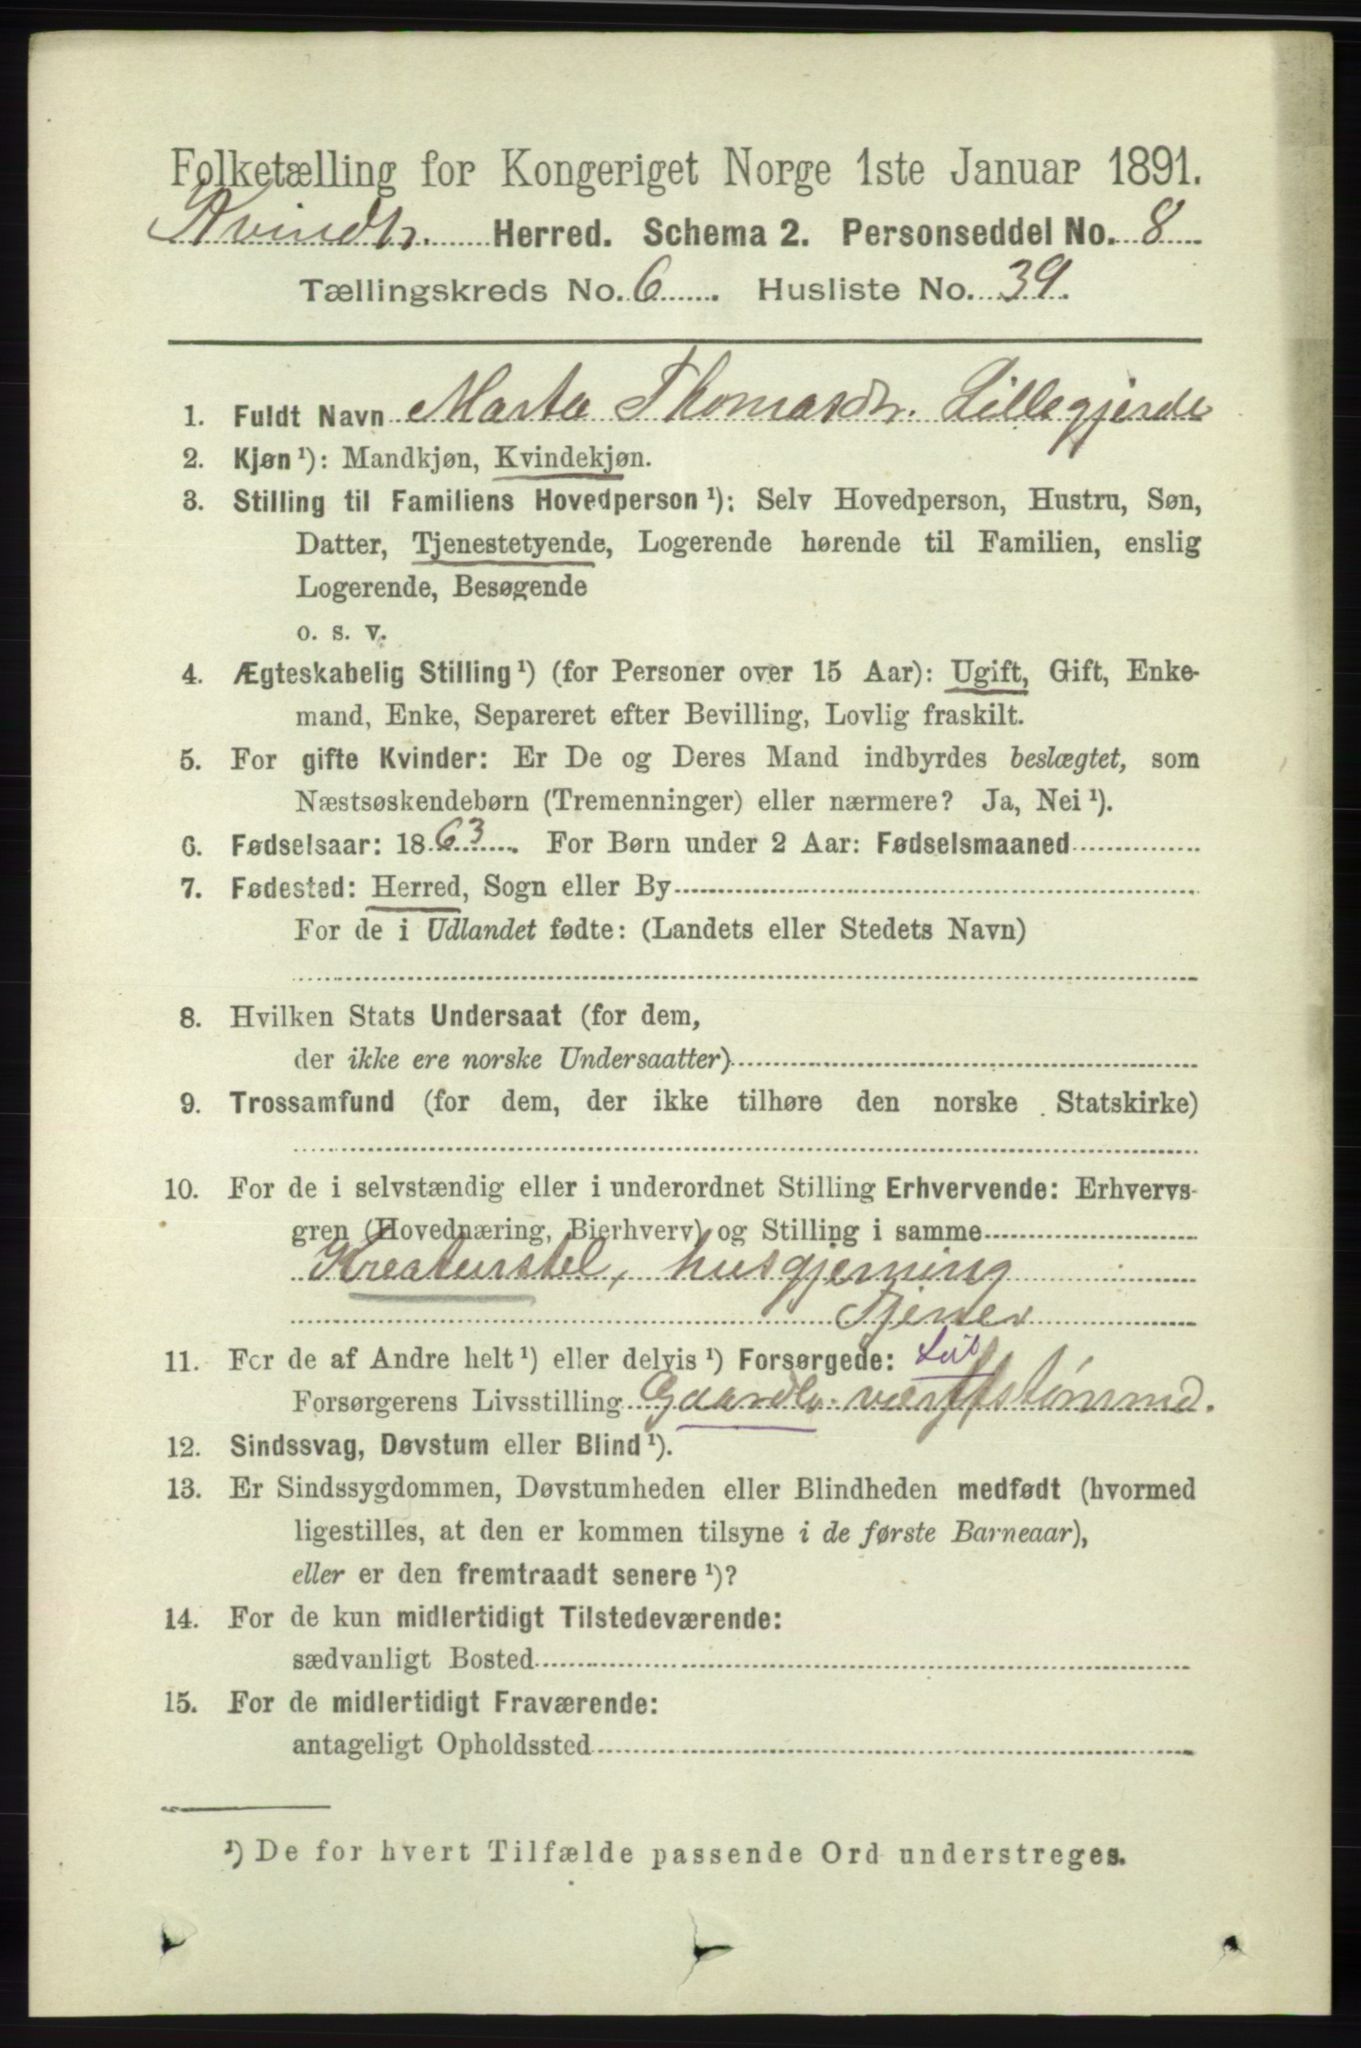 Folketælling for Kongeriget Norge 1ste Januar 1891.
Kvindh. Herred. Schema 2. Personseddel No. 8
Tællingskreds No. 6 Husliste No. 39.
1. Fuldt Navn Marta Thomasdr. Lillegjerde
2. Kjøn ¹): Mandkjøn, Kvindekjøn.
3. Stilling til Familiens Hovedperson ¹): Selv Hovedperson, Hustru, Søn,
Datter, Tjenestetyende, Logerende hørende til Familien, enslig
Logerende, Besøgende
o. s. v.
4. Ægteskabelig Stilling ¹) (for Personer over 15 Aar): Ugift, Gift, Enke-
mand, Enke, Separeret efter Bevilling, Lovlig fraskilt.
5. For gifte Kvinder: Er De og Deres Mand indbyrdes beslægtet, som
Næstsøskendebørn (Tremenninger) eller nærmere? Ja, Nei ¹).
6. Fødselsaar: 1863. For Børn under 2 Aar: Fødselsmaaned
7. Fødested: Herred, Sogn eller By
For de i Udlandet fødte: (Landets eller Stedets Navn)
8. Hvilken Stats Undersaat (for dem,
der ikke ere norske Undersaatter)
9. Trossamfund (for dem, der ikke tilhøre den norske Statskirke)
10. For de i selvstændig eller i underordnet Stilling Erhvervende: Erhvervs-
gren (Hovednæring, Bierhverv) og Stilling i samme
Kreaturstel, husgjerning
Tjener
11. For de af Andre helt ¹) eller delvis ¹) Forsørgede:
Forsørgerens Livsstilling Gaardbr.
12. Sindssvag, Døvstum eller Blind ¹).
13. Er Sindssygdommen, Døvstumheden eller Blindheden medfødt (hvormed
ligestilles, at den er kommen tilsyne i de første Barneaar),
eller er den fremtraadt senere ¹)?
14. For de kun midlertidigt Tilstedeværende:
sædvanligt Bosted
15. For de midlertidigt Fraværende:
antageligt Opholdssted
¹) De for hvert Tilfælde passende Ord understreges.